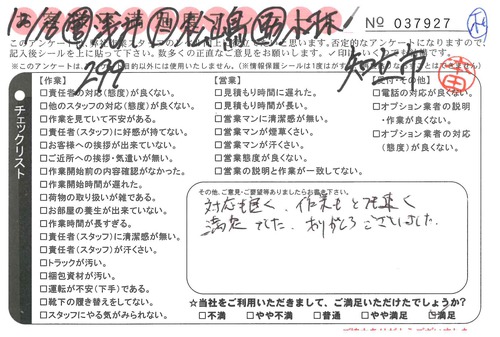 No 037927
このアンケートは、
思います。否定的なアンケートになりますので、
記入後シールを上に貼って下さい。
※このアンケートは、
目的以外には使用いたしません。
299
チェックリスト
【作業】
□責任者の対応(態度)が良くない。
□他のスタッフの対応(態度)が良くない。
□作業を見ていて不安がある。
□責任者(スタッフ)に好感が持てない。
□お客様への挨拶が出来ていない。
□ご近所への挨拶・気遣いが無い。
□作業開始前の内容確認がなかった。
□作業開始時間が遅れた。
□荷物の取り扱いが雑である。
□お部屋の養生が出来ていない。
□作業時間が長すぎる。
□責任者(スタッフ)に清潔感が無い。
□責任者(スタッフ)が汗くさい。
□トラックが汚い。
□梱包資材が汚い。
□運転が不安(下手)である。
□靴下の履き替えをしてない。
□スタッフにやる気がみられない。
【営業】
□見積もり時間に遅れた。
□見積もり時間が長い。
□営業マンに清潔感が無い。
□営業マンが煙草くさい。
□営業マンが汗くさい。
□営業態度が良くない。
□営業の説明と作業が一致してない。
【受付・その他】
□電話の対応が良くない。
□オプション業者の説明
・作業が良くない。
□オプション業者の対応
(態度)が良くない。
その他、ご意見・ご要望等ありましたらお書き下さい。
対応も良く、作業も
満足でした。ありがとうございました。
☆当社をご利用いただきまして、ご満足いただけたでしょうか?
□不満 □やや不満 □普通 □やや満足 ☑満足